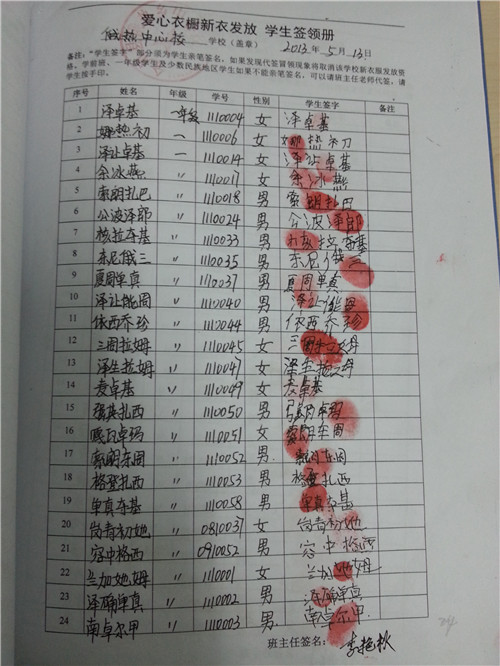 爱心衣橱新衣发放 学生签领册
俄热中心校 学校（盖章） 2013年5月13日
备注："学生签字"部分须为学生亲笔签名，如果发现代签冒领现象将取消该学校新衣服发放资
格，学前班、一年级学生及少数民族地区学生如果不能亲笔签名，可以请班主任老师代签，请
学生按手印。
序号 姓名 年级 学号 性别 学生签字 备注
1 泽卓基 一年级 1110004 女 泽卓基
2 娜热初 一 1110006 女 娜热初
3 泽让卓基 一 1110014 女 泽让卓基
4 余冰燕 〃 1110017 女 余冰燕
5 索朗扎巴 〃 1110018 男 索朗扎巴
6 公波泽郎 〃 1110024 男 公波泽郎
7 核拉夺基 〃 1110033 男 核拉夺基
8 东尼俄三 〃 1110035 男 东尼俄三
9 夏周单真 〃 1110037 男 夏周单真
10 泽让能周 〃 1110040 男 泽让能周
11 依西乔珍 〃 1112044 男 依西乔珍
12 三周拉姆 〃 1110045 女 三周拉姆
13 泽生拉姆 〃 1110047 女 泽生拉姆
14 麦卓基 〃 1110049 女 麦卓基
15 扎西 〃 1110050 男 卓玛
16 卓玛 〃 1110051 女 东周
17 东周 〃 1110052 男 东周
18 格登扎西 〃 1110053 男 格登扎西
19 单真夺基 〃 1110058 男 单真夺基
20 尚青初她 0810037 女 尚青初她
21 容中格西 0910052 男 容中格西
22 兰加她姆 〃 1110001 女 兰加她姆
23 泽确单真 〃 1110002 男 泽确单真
24 南卓尔甲 〃 1110003 男 南卓尔甲
班主任签名： 李艳秋